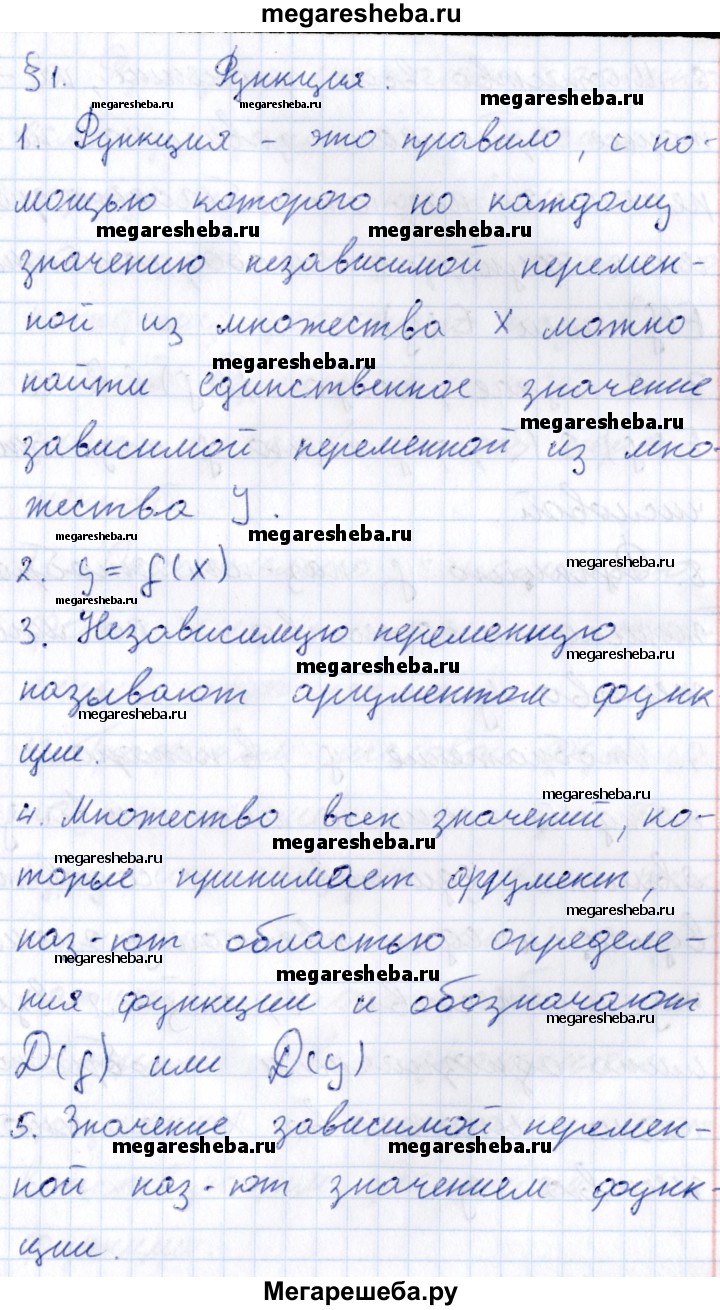 megaresheba.ru
§1. Функция.
megaresheba.ru megaresheba.ru megaresheba.ru
1. Функция – это правило, с по-
мощью которого по каждому
megaresheba.ru megaresheba.ru
значению независимой перемен-
ной из множества X можно
megaresheba.ru
найти единственное значение
megaresheba.ru
зависимой переменной из мно-
жества У.
megaresheba.ru megaresheba.ru
2. y = f(x)
megaresheba.ru
megaresheba.ru
3. Независимую переменную
megaresheba.ru
megaresheba.ru
называют аргументом функ
megaresheba.ru
ции.
megaresheba.ru
4. Множество всех значений, ко-
megaresheba.ru
megaresheba.ru
торые принимает аргумент,
megaresheba.ru
наз-ют областью определе-
megaresheba.ru
megaresheba.ru
ния функции и обозначают
megaresheba.ru
D(f) или D(y)
5. Значение зависимой перемен-
megaresheba.ru megaresheba.ru
ной наз-ют значением функ-
ции.
Мегарешеба.ру